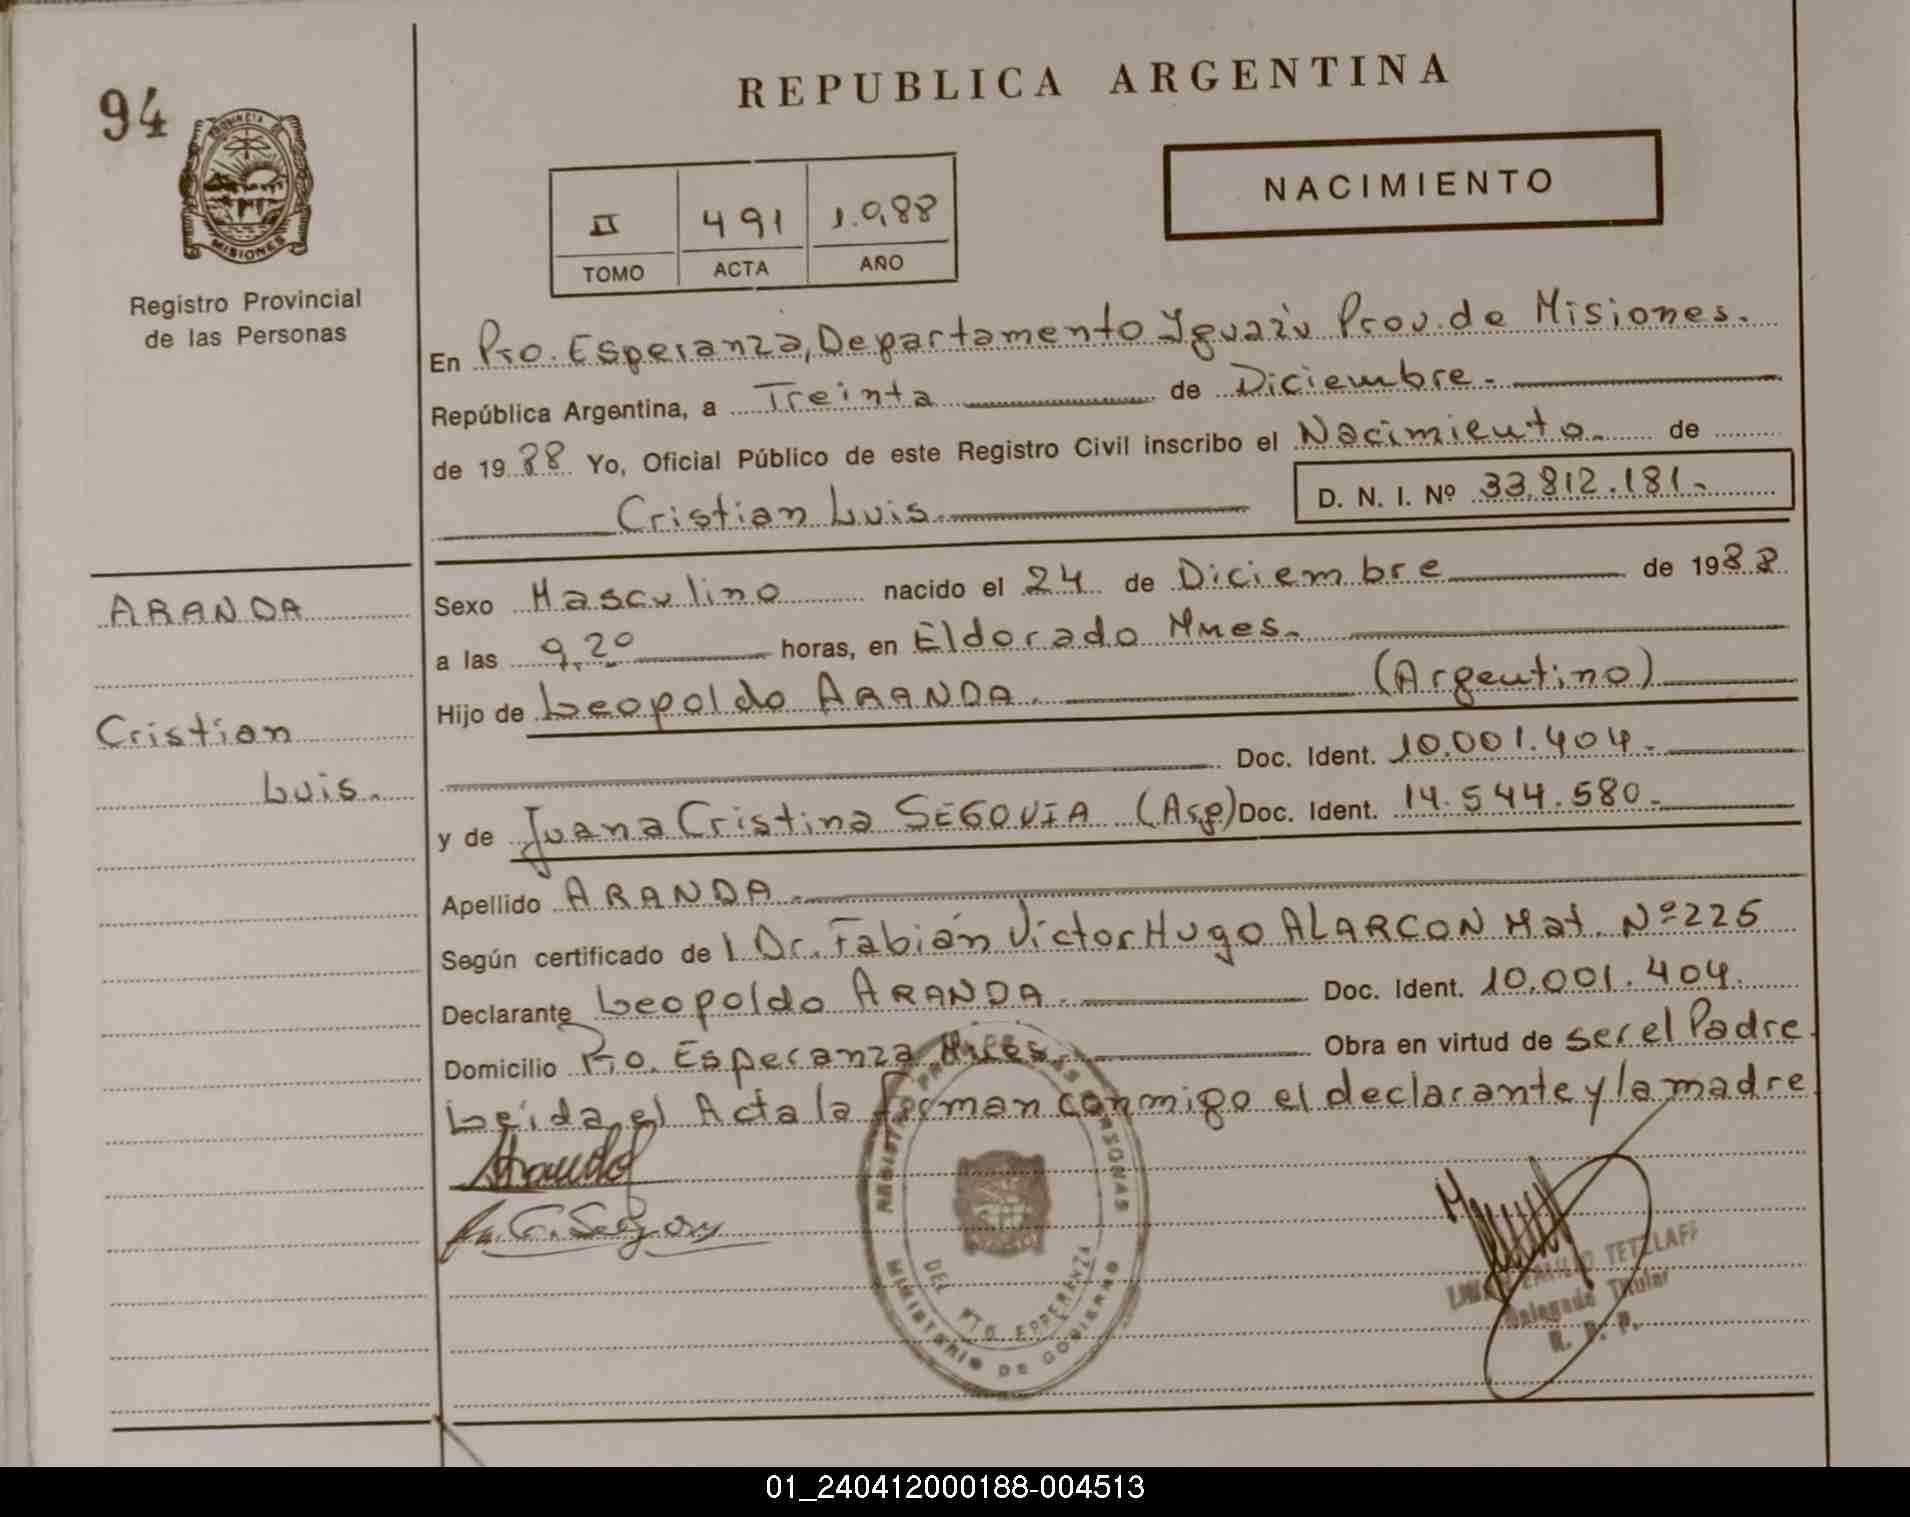 94
REPUBLICA ARGENTINA
PROVINCIA DE
MISIONES
Registro Provincial
de las Personas
NACIMIENTO
II 491 1.988
TOMO ACTA AÑO
En Pto. Esperanza, Departamento Iguazú Prov. de Misiones.
República Argentina, a Treinta de Diciembre.-
de 1988 Yo, Oficial Público de este Registro Civil inscribo el Nacimiento. de
Cristian Luis.
D. N. I. Nº 33.812.181.-
ARANDA
Cristian
Luis.
Sexo Masculino nacido el 24 de Diciembre de 1988
a las 9,20 horas, en Eldorado Mnes.
Hijo de Leopoldo ARANDA. (Argentino)
Doc. Ident. 10.001.404.-
y de Juana Cristina SEGOVIA (Arg) Doc. Ident. 14.544.580.-
Apellido ARANDA.
Según certificado del Dr. Fabián Victor Hugo ALARCON Mat. Nº 226
Declarante Leopoldo ARANDA. Doc. Ident. 10.001.404.
Domicilio Pto. Esperanza Mnes. Obra en virtud de ser el Padre.
Leída el Acta la firman conmigo el declarante y la madre.
REGISTRO PROV. DE LAS PERSONAS
DEL PTO ESPERANZA
MINISTERIO DE GOBIERNO
EMILIO TETZLAFF
Delegado Titular
R. P. P.
01_240412000188-004513